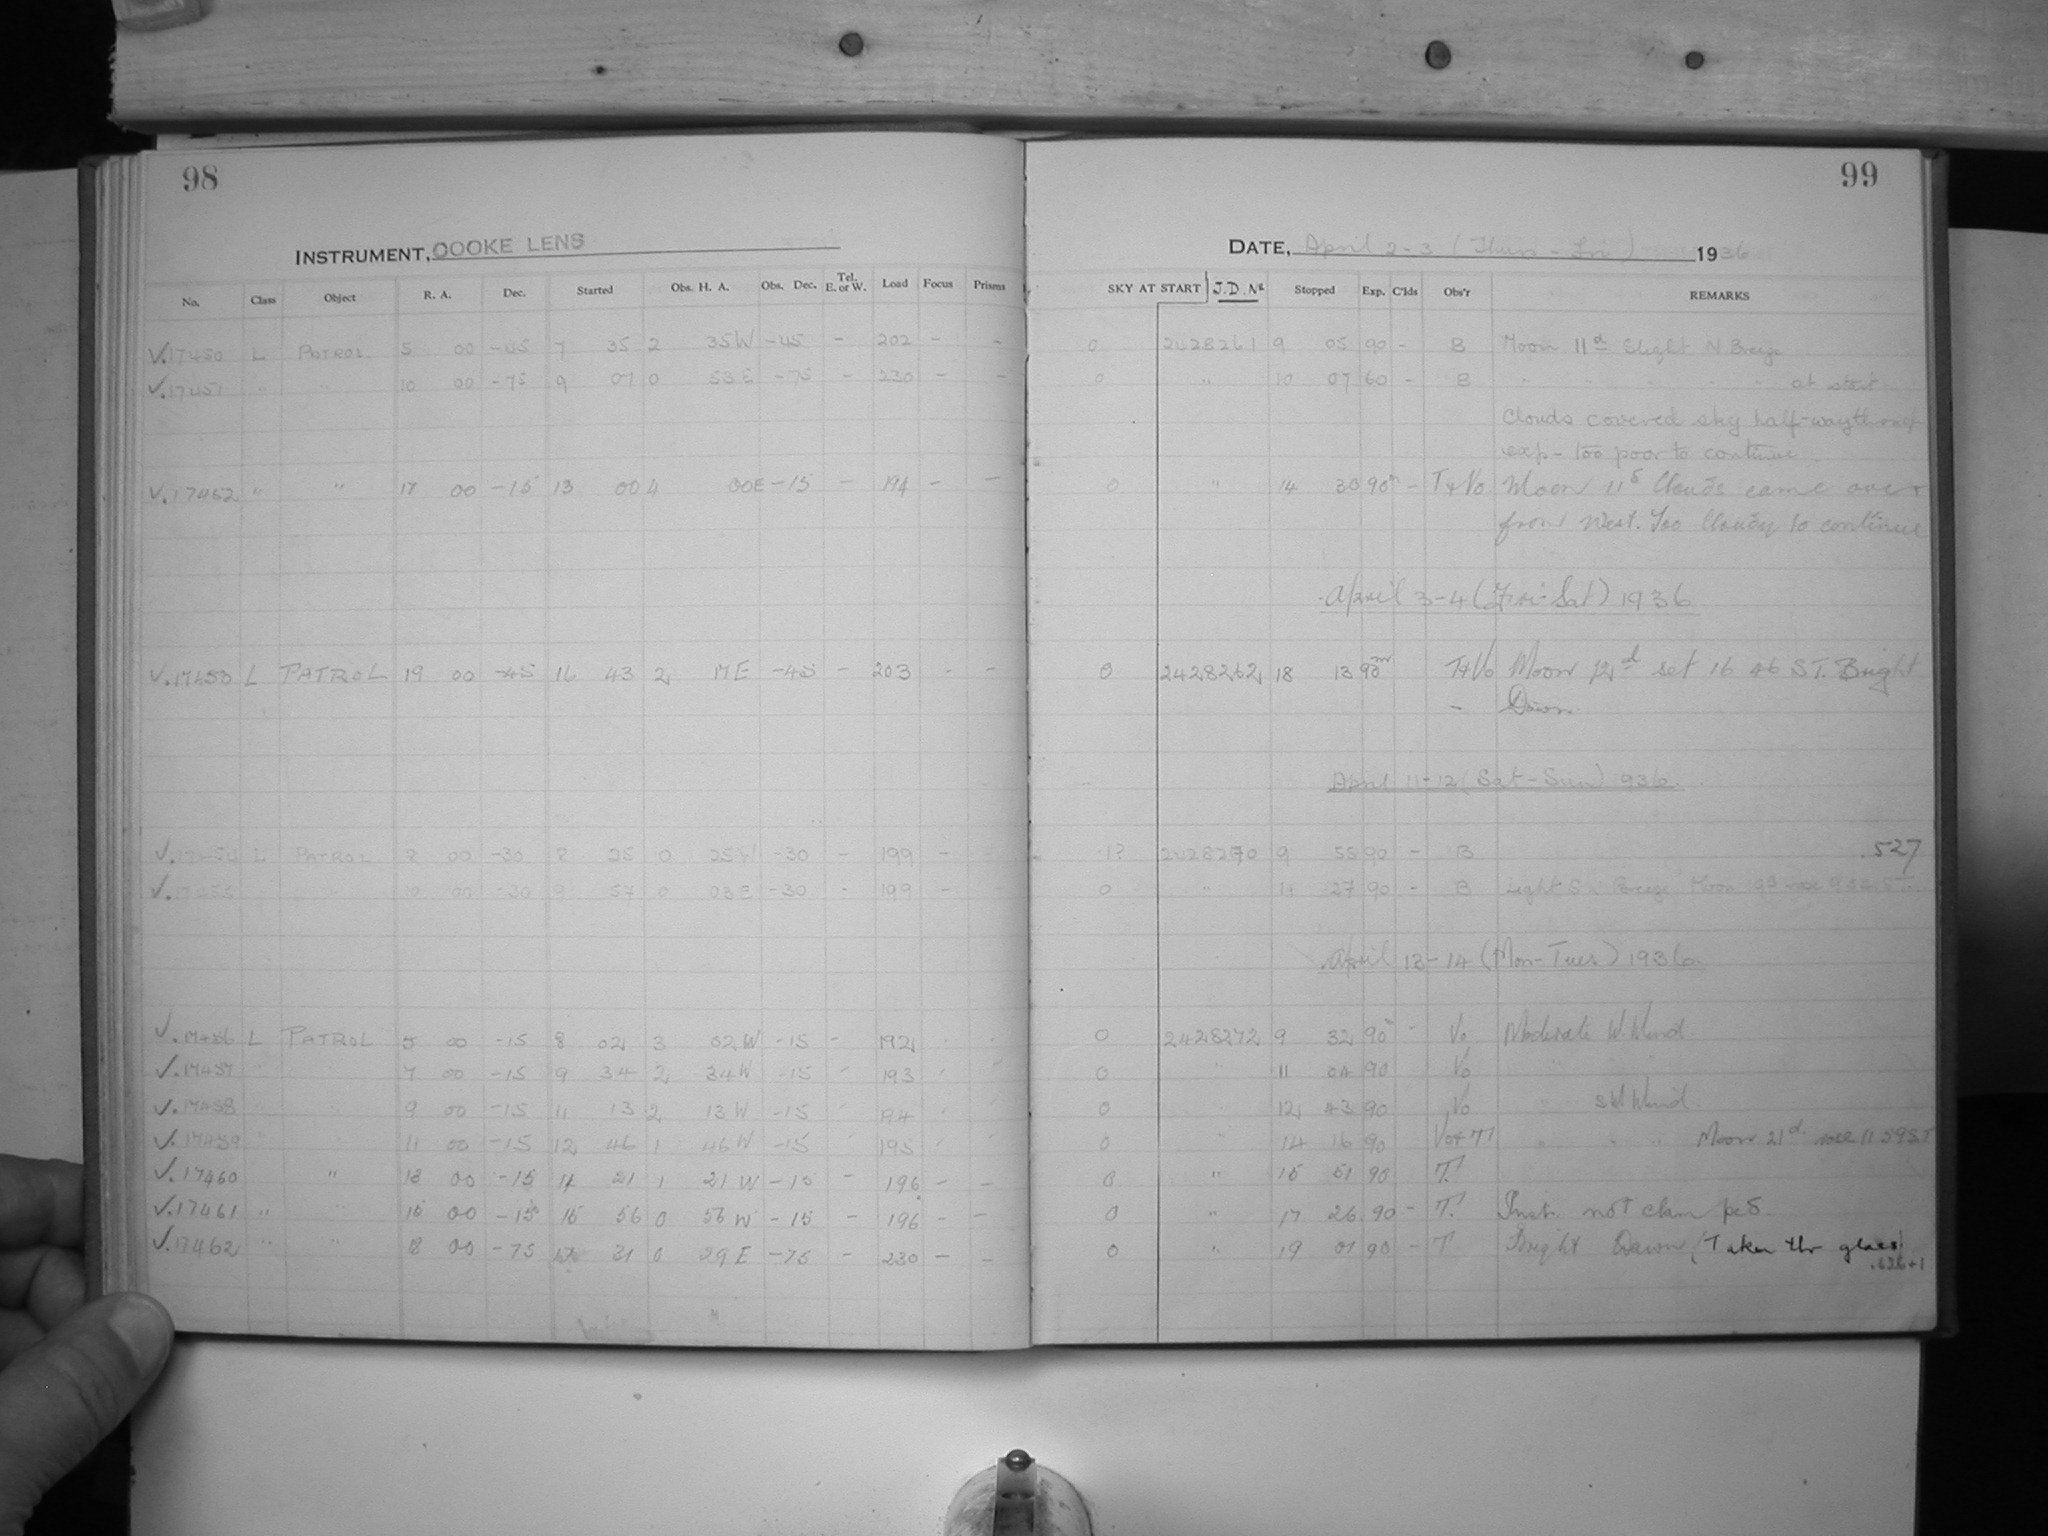 98
INSTRUMENT, COOKE LENS
No. Class Object R. A. Dec. Started Obs. H. A. Obs. Dec. Tel. E. or W. Load Focus Prisms
V.17450 L PATROL 5 00 -45 7 35 2 35W -45 - 202 - -
V.17451 " " 10 00 -75 9 07 0 53E -75 - 230 - -
V.17452 " " 17 00 -15 13 00 4 00E -15 - 194 - -
V.17453 L PATROL 19 00 -45 16 43 2 17E -45 - 203 - -
V.17454 L PATROL 8 00 -30 8 25 0 25W -30 - 199 -
V.17455 " 10 00 -30 9 57 0 03E -30 - 199 -
V.17456 L PATROL 5 00 -15 8 02 3 02W -15 - 192
V.17457 " " 7 00 -15 9 34 2 34W -15 " 193
V.17458 " " 9 00 -15 11 13 2 13W -15 " 194
V.17459 " " 11 00 -15 12 46 1 46W -15 " 195
V.17460 " 13 00 -15 14 21 1 21W -15 - 196 - -
V.17461 " " 15 00 -15 15 56 0 56W -15 - 196 - -
V.17462 " " 18 00 -75 17 31 0 29E -75 - 230 - -
99
DATE, April 2-3 (Thurs - Fri) 1936
SKY AT START J.D. No Stopped Exp. C'lds Obs'r REMARKS
0 2428261 9 05 90 - B Moon 11d Slight N Breeze
0 " 10 07 60 - B " " " " at start
Clouds covered sky half-way through
exp - too poor to continue
0 " 14 30 90m - T+Vo Moon 11d Clouds came over
from West. Too Cloudy to continue
April 3-4 (Fri-Sat) 1936
0 2428262 18 13 90m T+Vo Moon 12d set 16 46 ST. Bright
- Dawn.
April 11-12 (Sat-Sun) 1936
1? 2428270 9 55 90 - B .527
0 " 11 27 90 - B Light S Breeze Moon 19d rose
April 13-14 (Mon-Tues) 1936
0 2428272 9 32 90m - Vo Moderate W. Wind
0 " 11 04 90 Vo
0 " 12 43 90 Vo " SW Wind
0 " 14 16 90 Vo+T " " " Moon 21d rose 11 59 ST
0 " 15 51 90 T.
0 " 17 26 90 - T. Inst. not clamped.
0 " 19 01 90 - T Bright Dawn (Taken thr glass)